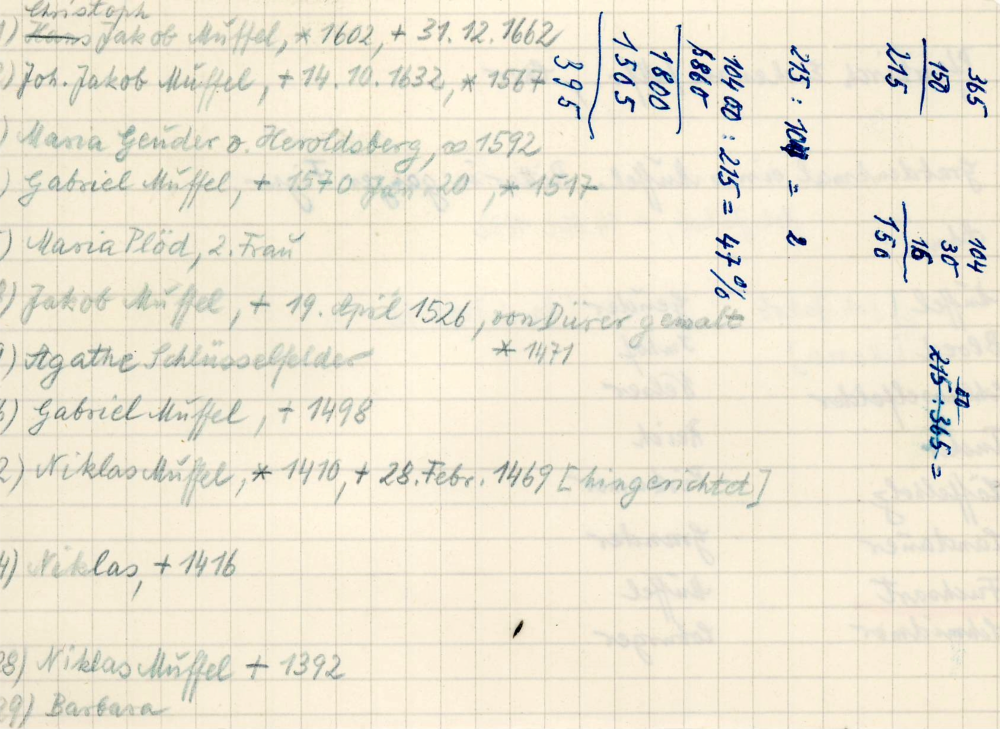 Christoph
) Hans Jakob Muffel, * 1602, + 31.12.1662
) Joh. Jakob Muffel, + 14.10.1632, * 1567
) Maria Geuder v. Heroldsberg, ∞ 1592
) Gabriel Muffel, + 1570 Jan. 20, * 1517
) Maria Plöd, 2. Frau
) Jakob Muffel, + 19. April 1526, von Dürer gemalt
* 1471
) Agathe Schlüsselfelder
) Gabriel Müffel, + 1498
2) Niklas Muffel, * 1410, + 28. Febr. 1469 [hingerichtet]
4) Niklas, + 1416
8) Niklas Muffel + 1392
9) Barbara
365
150
215
104
30
16
150
215 : 365 =
215 : 104 = 2
10400 : 215 = 47%
8860
1800
1505
395